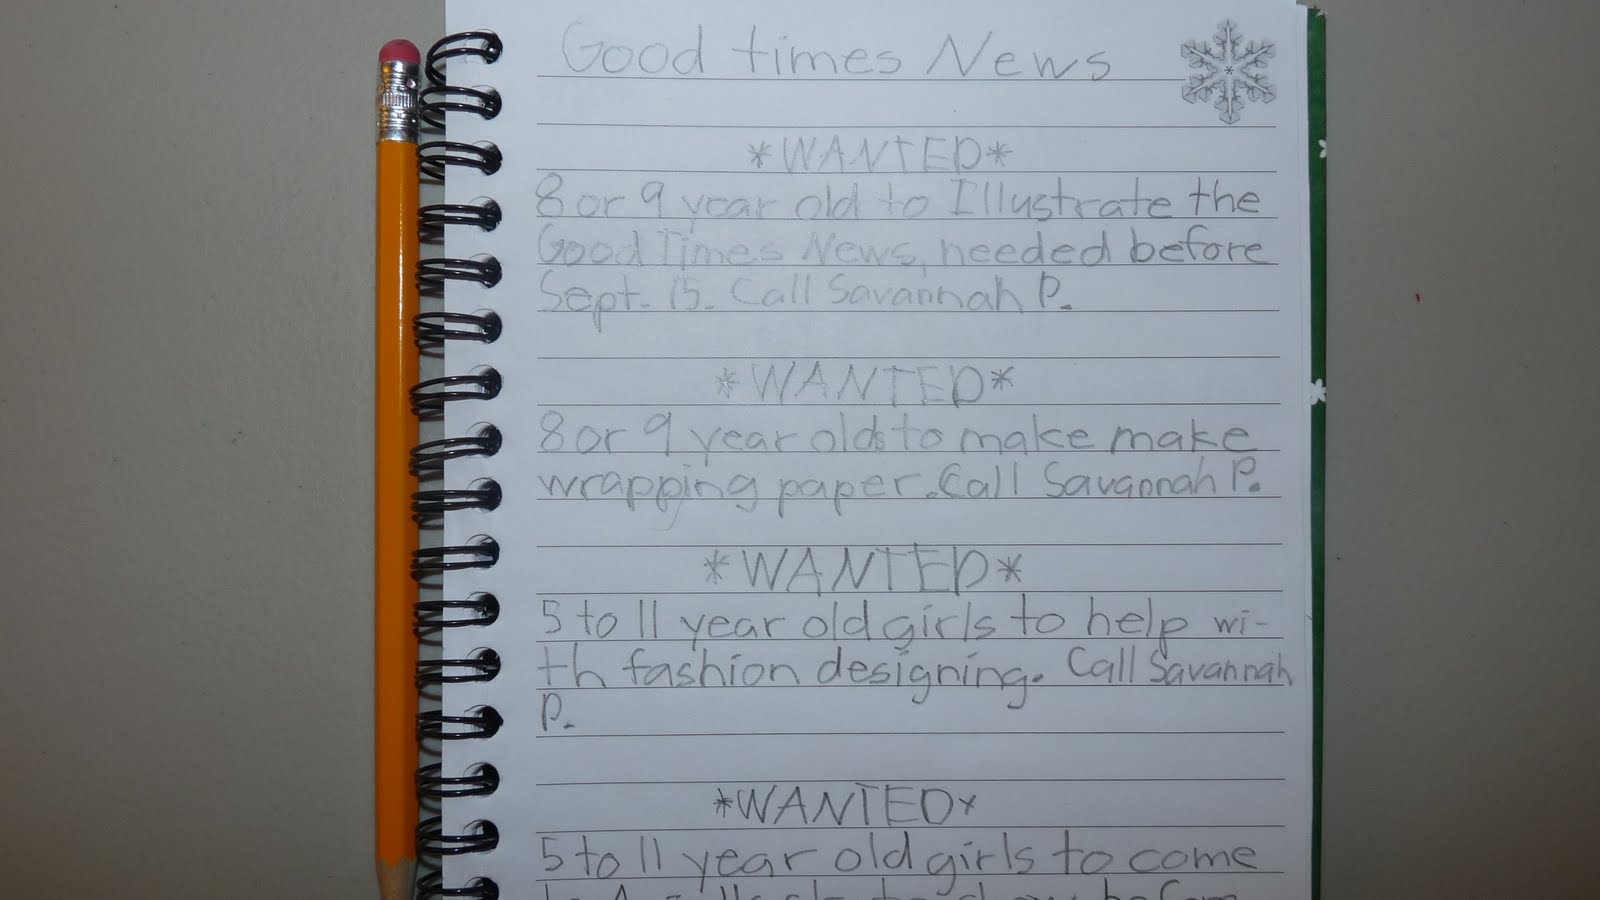 Good times News
*WANTED*
8 or 9 year old to Illustrate the
Good Times News, needed before
Sept. 15. Call Savannah P.
*WANTED*
8 or 9 year olds to make make
wrapping paper. Call Savannah P.
*WANTED*
5 to 11 year old girls to help wi-
th fashion designing. Call Savannah
P.
*WANTED*
5 to 11 year old girls to come
to show before